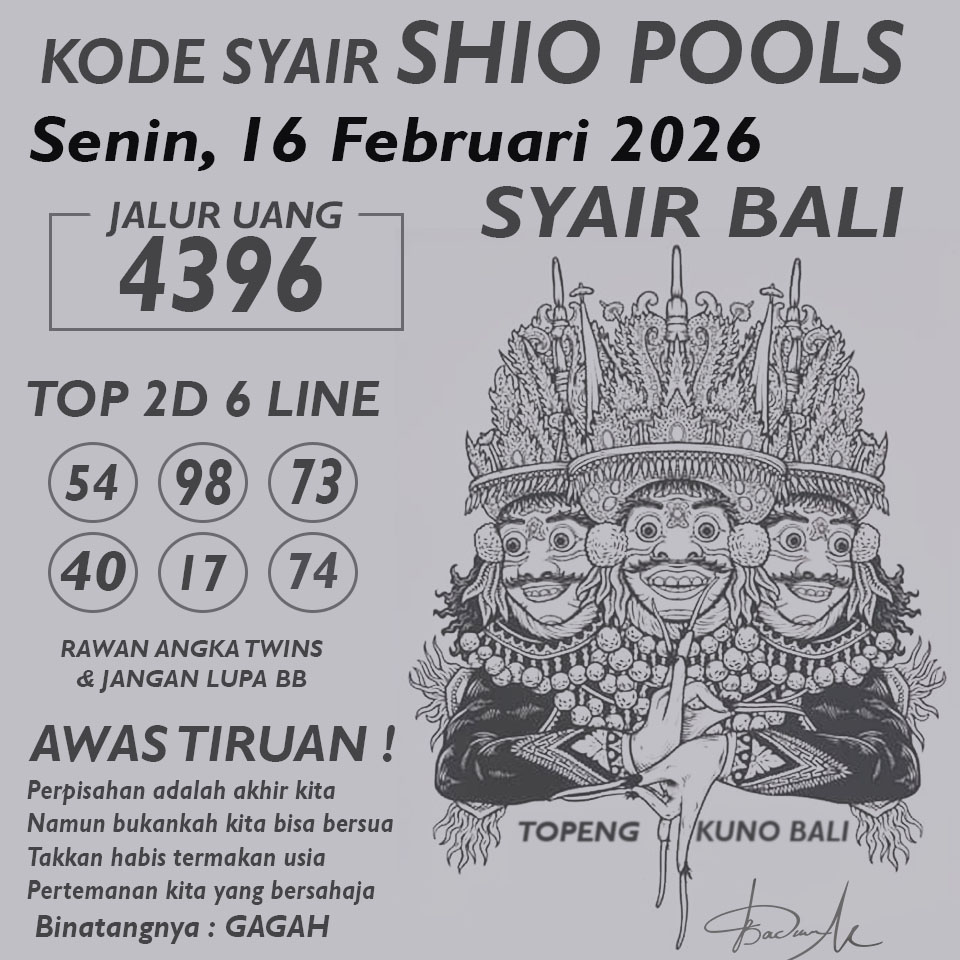 KODE SYAIR SHIO POOLS
Senin, 16 Februari 2026
SYAIR BALI
JALUR UANG
4396
TOP 2D 6 LINE
54 98 73
40 17 74
RAWAN ANGKA TWINS
& JANGAN LUPA BB
AWAS TIRUAN !
Perpisahan adalah akhir kita
Namun bukankah kita bisa bersua
Takkan habis termakan usia
Pertemanan kita yang bersahaja
Binatangnya : GAGAH
TOPENG KUNO BALI